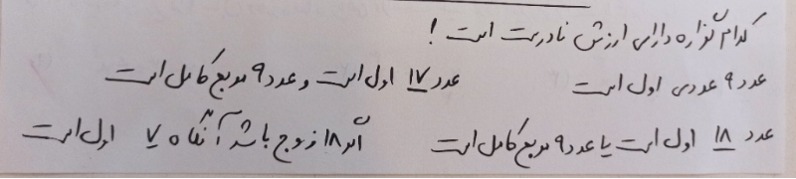 کدام گزاره دارای ارزش نادرست است !
عدد ۹ عددی اول است عدد ۱۷ اول است و عدد ۹ مربع کامل است
عدد ۱۸ اول است یا عدد ۹ مربع کامل است اگر ۱۸ زوج باشد آنگاه ۷ اول است